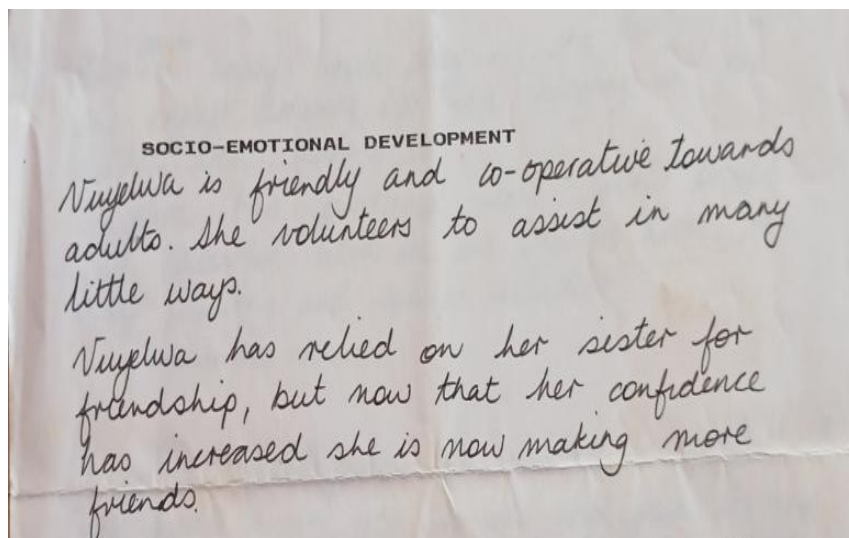 SOCIO-EMOTIONAL DEVELOPMENT
Vuyelwa is friendly and co-operative towards
adults. She volunteers to assist in many
little ways.
Vuyelwa has relied on her sister for
friendship, but now that her confidence
has increased she is now making more
friends.